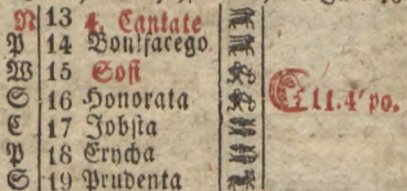 N 13 4. Cantate
P 14 Bonifacego
W 15 Sofi
S 16 Honorata 11.4' po.
C 17 Jobsta
P 18 Erycha
S 19 Prudenta